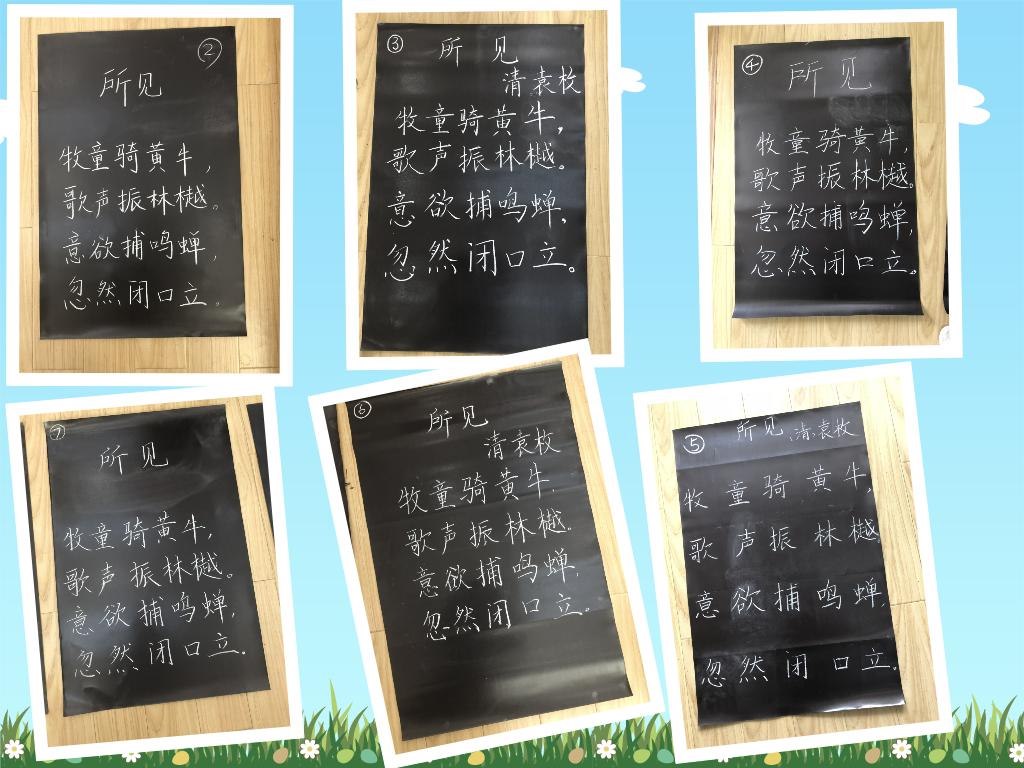 ②
所见
牧童骑黄牛，
歌声振林樾。
意欲捕鸣蝉，
忽然闭口立。
③
所见
清袁枚
牧童骑黄牛，
歌声振林樾。
意欲捕鸣蝉，
忽然闭口立。
④
所见
牧童骑黄牛，
歌声振林樾。
意欲捕鸣蝉，
忽然闭口立。
⑦
所见
牧童骑黄牛，
歌声振林樾。
意欲捕鸣蝉，
忽然闭口立.
⑥
所见
清袁枚
牧童骑黄牛，
歌声振林樾.
意欲捕鸣蝉，
忽然闭口立.
⑤
所见 清袁枚
牧童骑黄牛，
歌声振林樾
意欲捕鸣蝉，
忽然闭口立.